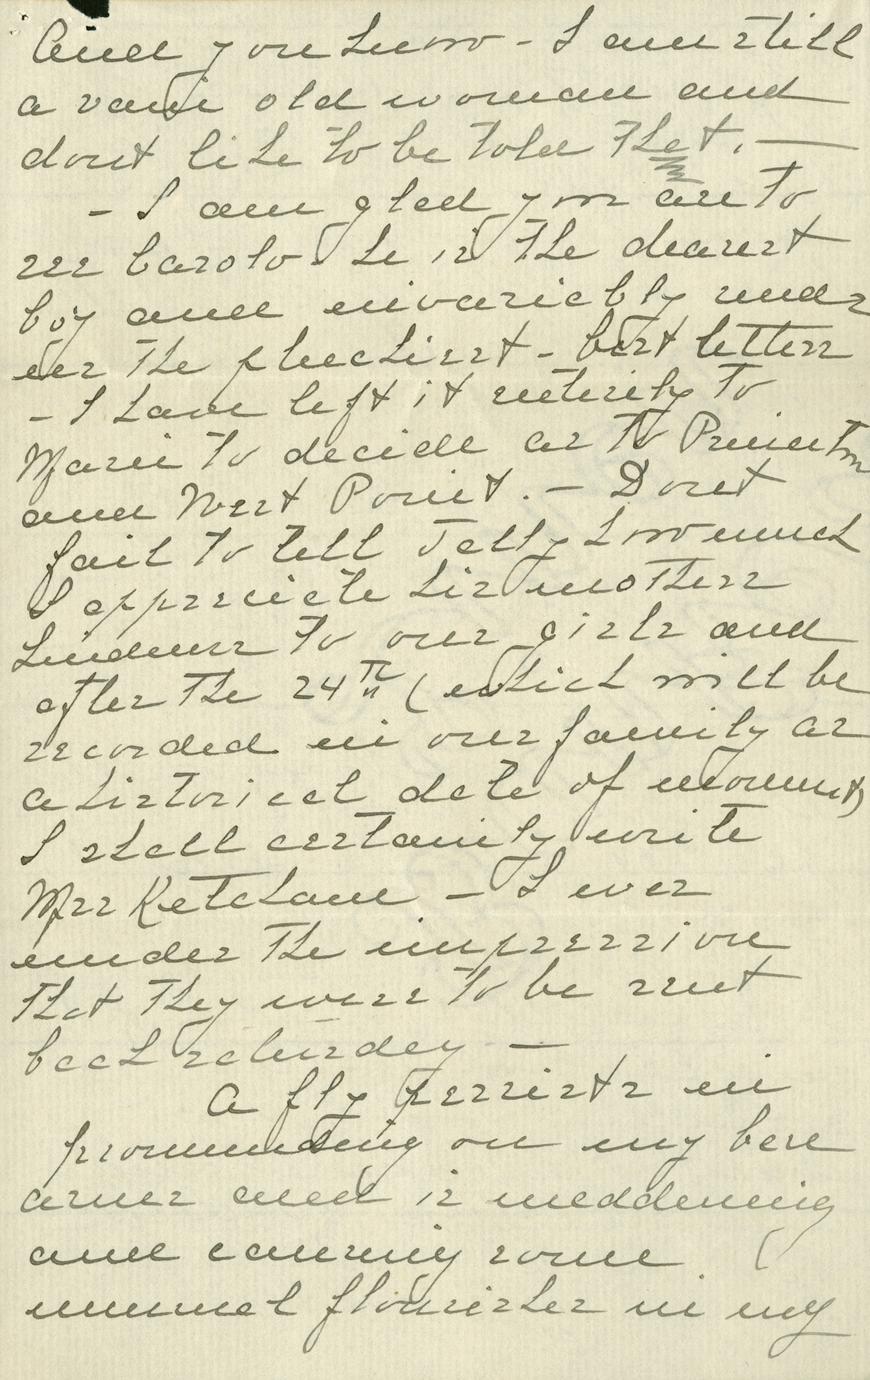 And you know - I am still
a vain old woman and
dont like to be told that. —
- I am glad you are to
see Carolo. he is the dearest
boy and invariably sends
me the pluckiest - best letters
- I have left it entirely to
Marie to decide as to Princeton
and West Point. - Dont
fail to tell Tally how much
I appreciate his mothers
kindness to our girls and
after the 24th (which will be
recorded in our family as
a historical date of moment)
I shall certainly write
Mrs Ketcham - I was
under the impression
that they were to be sent
back saturday —
A fly persists in
promenading on my bare
arms and is maddening
and causing some
unusual flourishes in my